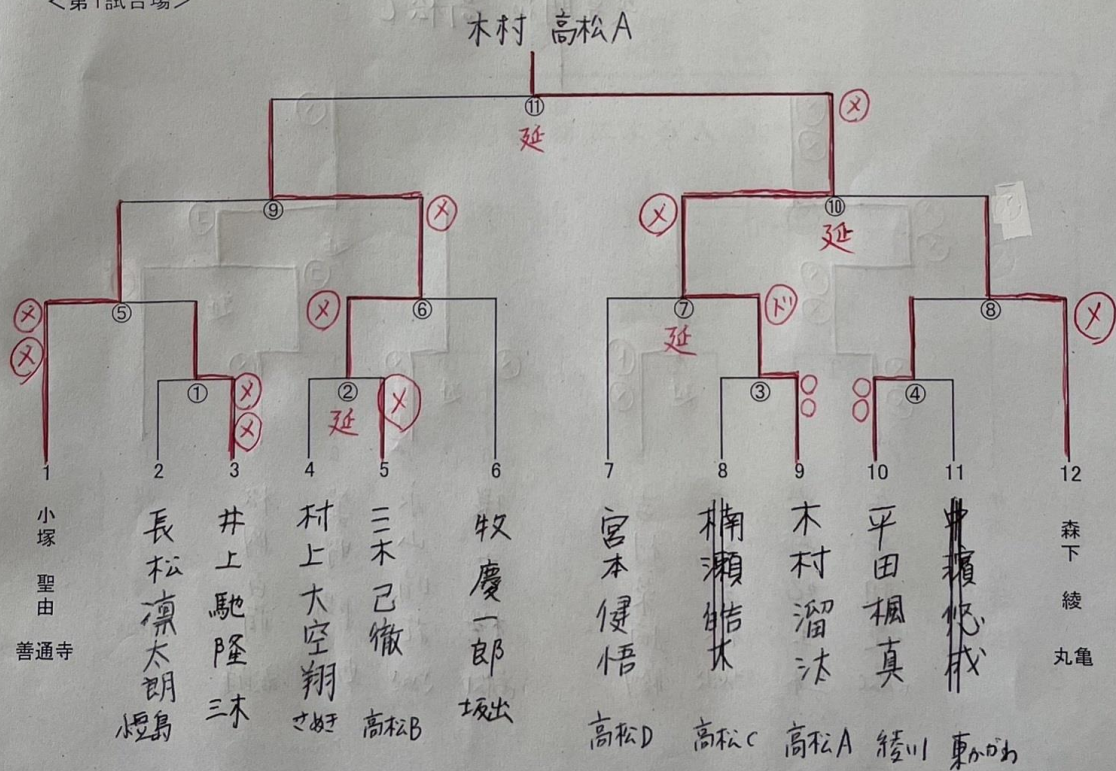 ＜第1試合場＞
木村 高松A
⑪
延
メ
⑨
メ
メ
⑩
延
メ
メ
⑤
メ
⑥
⑦
延
ド
⑧
メ
①
メ
メ
②
延
メ
③
○
○
○
○
④
1 2 3 4 5 6 7 8 9 10 11 12
小塚 聖由 善通寺
長松 凛太朗 小豆島
井上 馳隆 三木
村上 大空翔 さぬき
三木 己徹 高松B
牧 慶一郎 坂出
宮本 健悟 高松D
楠瀬 皓太 高松C
木村 溜汰 高松A
平田 楓真 綾川
中濱 悠成 東かがわ
森下 綾 丸亀